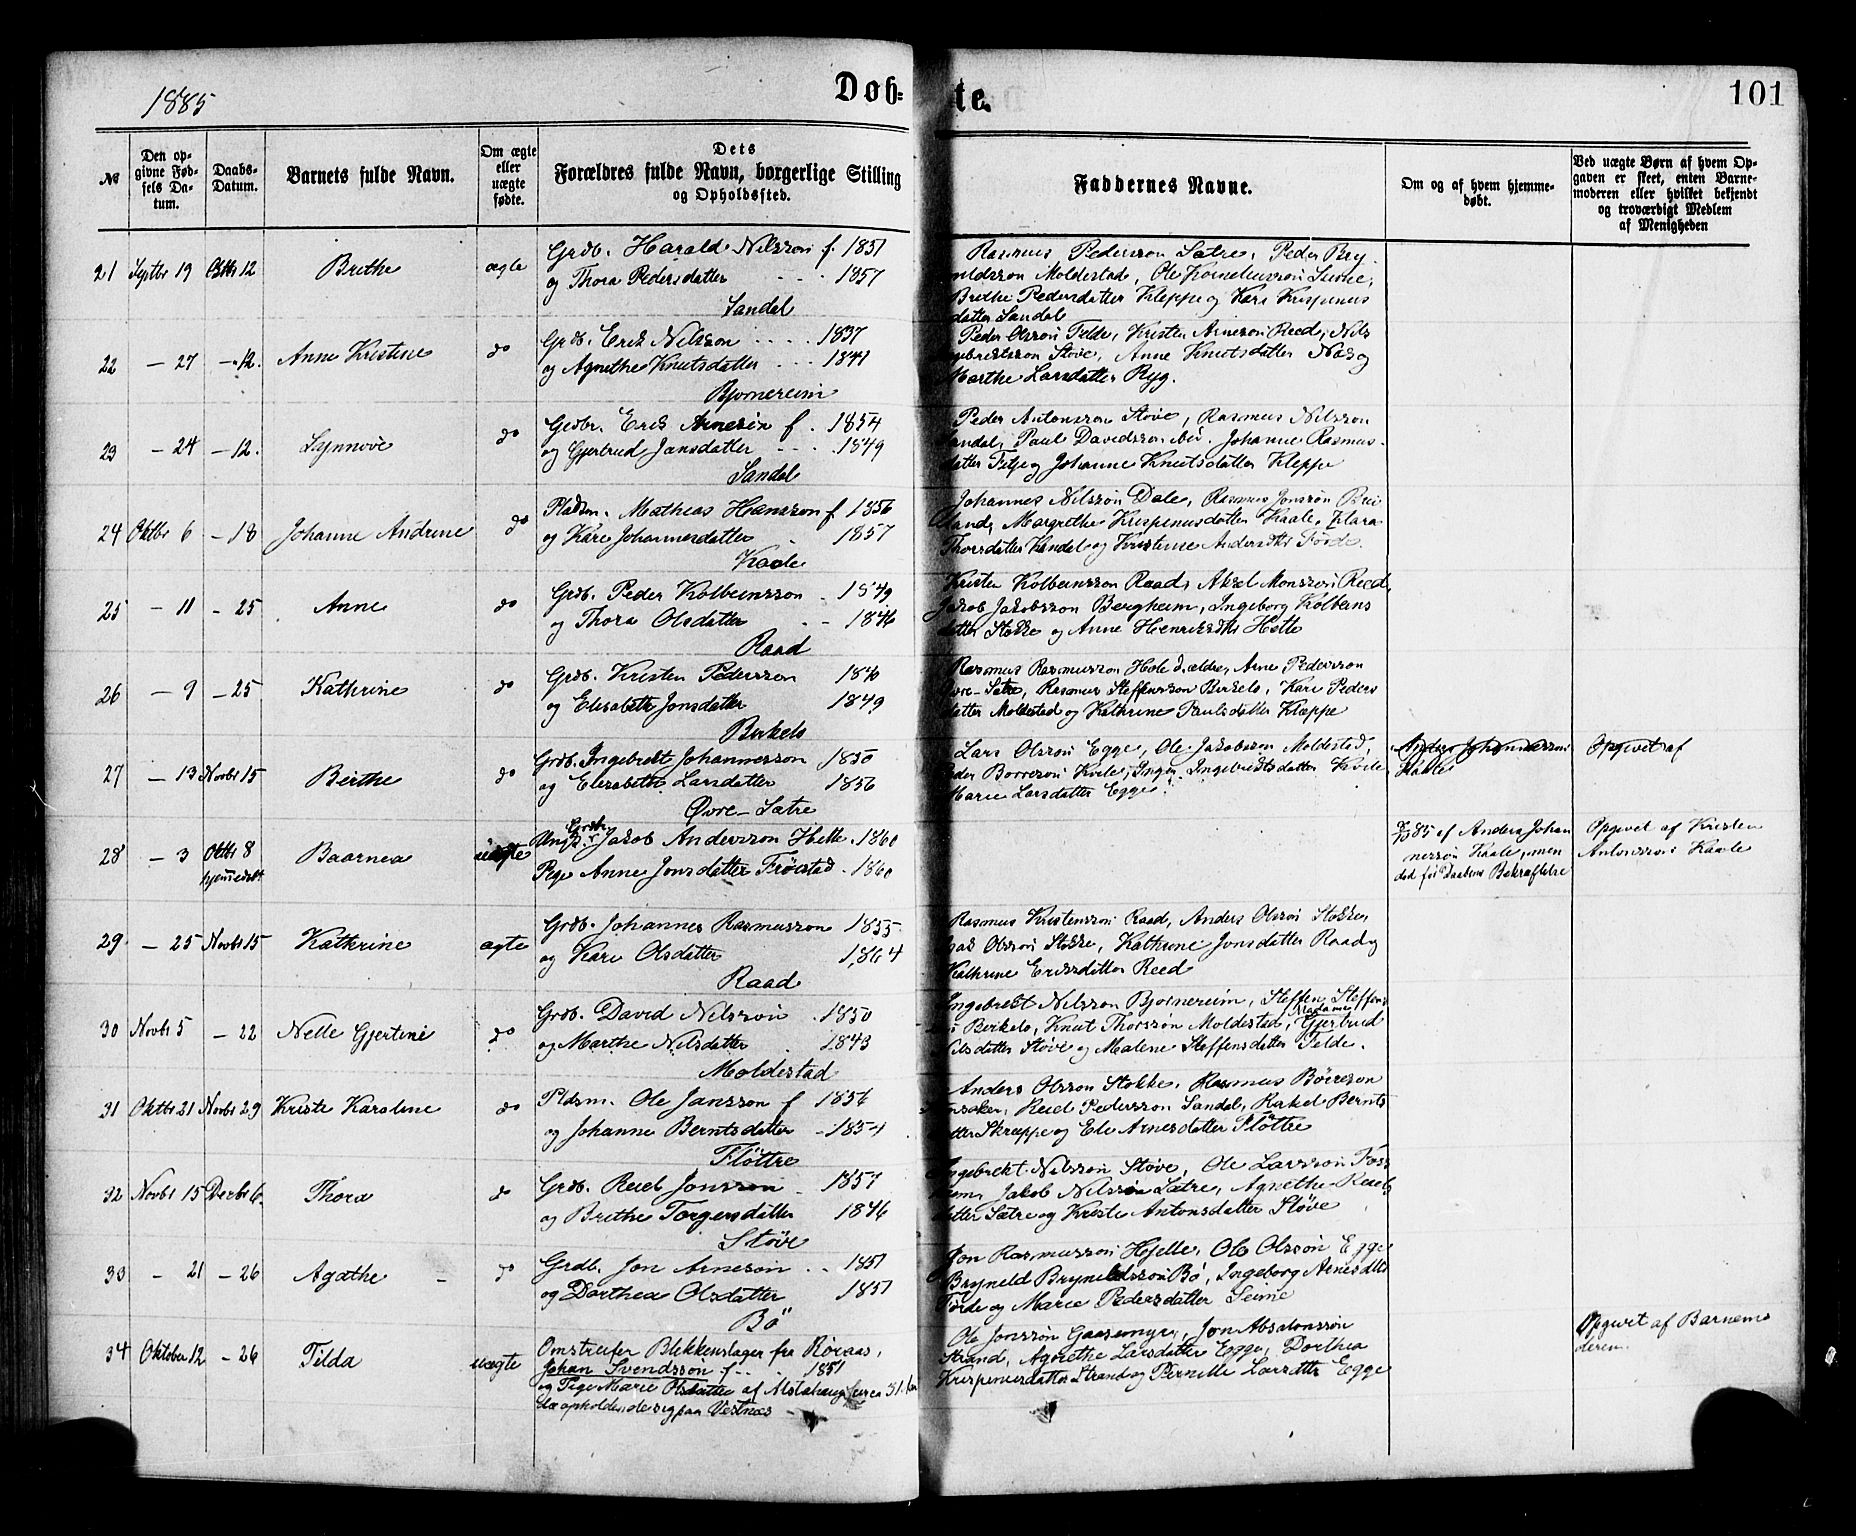 1885
Døb-
te.
101
№
Den op-
givne Fød-
sels Da-
tum.
Daabs-
Datum.
Barnets fulde Navn.
Om ægte
eller
uægte
fødte.
Dets
Forældres fulde Navn, borgerlige Stilling
og Opholdssted.
Faddernes Navne.
Om og af hvem hjemme-
døbt.
Ved uægte Børn af hvem Op-
gaven er skeet, enten Barne-
moderen eller hvilket bekjendt
og troværdigt Medlem
af Menigheden
21 Septbr 19 Oktbr 12 Brithe ægte Grdb. Harald Nilsson f. 1851
og Thora Pedersdatter - - - 1857
Sandal
Rasmus Pedersson Sætre, Peder Bry-
nildsson Moldestad, Ole Korneliusson Seime,
Brithe Pedersdatter Kleppe og Kari Krispinus
datter Sandal
22 - 27 - 12. Anne Kristine do Grdb. Erik Nilsson . . . . 1837
og Agnethe Knutsdatter . . 1841
Bjørnereim
Peder Olsson Felde, Kristen Arneson Reed, Nils
Ingebrektsson Støve, Anne Knutsdatter Næs og
Marthe Larsdatter Ryg.
23 - 24 - 12. Synnøve do Grdbr. Erik Arnesön f. 1854
og Gjertrud Jansdatter - - - 1849
Sandal
Peder Antonsson Støve, Rasmus Nilsson
Sandal, Paul Davidsson ibid. Johanne Rasmus-
datter Fitje og Johanne Knutsdatter Kleppe
24 Oktbr 6 - 18 Johanne Andrine do Pladsm. Mathias Hansson f. 1856
og Kari Johannesdatter . 1857
Kaale
Johannes Nilssön Dale, Rasmus Jonssön
Margrethe Krispinusdatter Kaale, Klara
Thorsdatter Kandal og Kristine Andersdtr Förde.
25 - 11 - 25 Anne do Grdb. Peder Kolbeinsson . 1849
og Thora Olsdatter - - 1846
Raad
Kristen Kolbeinsson Raad, Aksel Monsson Reed,
Jakob Jakobsson Bergheim, Ingeborg Kolbeins
datter Stokke og Anne Henriksdtr Hette
26 - 9 - 25 Kathrine do Grdb. Kristen Pedersson 1840
og Elisabeth Jonsdatter 1849
Birkelo
Rasmus Rasmusson Hole d. ældre, Arne Pedersson
Øvre-Sætre, Rasmus Steffensson Birkelo, Kari Peders
datter Moldestad og Kathrine Paulsdatter Kleppe
27 - 13 Novbr 15 Berthe do Grdb. Ingebrekt Johannesson 1850
og Elisabeth Larsdatter 1856
Øvre-Sætre
Lars Olsson Egge, Ole Jakobsson Moldestad,
Peder Börreson Kvile, Inger Ingebrektsdatter Kvile,
Marie Larsdatter Egge.
Anders Johannesson
Kaale
Opgivet af
28 - 3 Oktbr 8
hjemmedøbt Baarnea uægte Ungk. Grdbr. Jakob Andersson Hette . 1860
Pige Anne Jonsdatter Fröistad . 1860
85 af Anders Johan
nessön Kaale, men
död før Daabens Bekræftelse
Opgivet af Kristen
Antonsson Kaale
29 - 25 Novbr 15 Kathrine ægte Grdb. Johannes Rasmusson 1855
og Kari Olsdatter 1864
Raad
Rasmus Kristensson Raad, Anders Olsson Stokke,
Olsson Stokke, Kathrine Jonsdatter Raad og
Kathrine Eriksdatter Reed
30 Novbr 5 - 22 Nelle Gjertine do Grdb. David Nilssön . 1850
og Marthe Nilsdatter . 1843
Moldestad
Ingebrekt Nilsson Bjørnereim, Steffen Steffens
Birkelo, Knut Thorssön Moldestad, Madame Gjertrud
Nilsdatter Støve og Malene Steffensdatter Felde.
31 Oktbr 21 Novbr 29 Kriste Karoline do Pldsm. Ole Jansson f. 1856
og Johanne Berntsdatter - 1854
Flöttre
Anders Olsson Stokke, Rasmus Börreson
Reiel Pedersson Sandal, Rakel Bernts
datter Skræppe og Eli Arnesdatter Flöttre
32 Novbr 15 Decbr 6 Thora do Grdb. Reiel Jonsson . 1857
og Brithe Torgersdatter 1846
Støve
Ingebrekt Nilsson Støve, Ole Larsson Foss
heim, Jakob Nilsson Sætre, Agnethe Reiels
datter Sætre og Kriste Antonsdatter Støve
33 - 21 - 26 Agathe do Grdb. Jon Arnesön . . 1851
og Dorthea Olsdatter 1851
Bö
Jon Rasmusson Hjelle, Ole Olssön Egge
Bryneld Bryneldssön Bö, Ingeborg Arnesdtr
Förde og Marie Pedersdatter Seime
34 Oktober 12 - 26 Tilda uægte Omstreifer Blikkenslager fra Röraas,
Johan Svendssön f. . . 1851
og Pige Marie Olsdatter af Alstahaug circa 31.
opholdende sig paa Vestnæs
Ole Jonssön Gaasemyr, Jon Absalonssön
Strand, Agnethe Larsdatter Egge, Dorthea
Krispinusdatter Strand og Pernille Larsdtr Egge
Opgivet af Barnemo
deren.